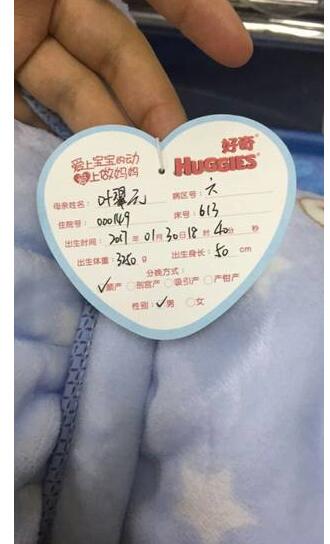 爱上宝宝的动
爱上做妈妈
好奇®
HUGGIES®
母亲姓名: 叶翠元 病区号: 六
住院号: 000149 床号: 613
出生时间: 2017年01月30日18时40分 秒
出生体重: 3250g 出生身长: 50cm
分娩方式:
✓顺产 ○剖宫产 ○吸引产 ○产钳产
性别: ✓男 ○女